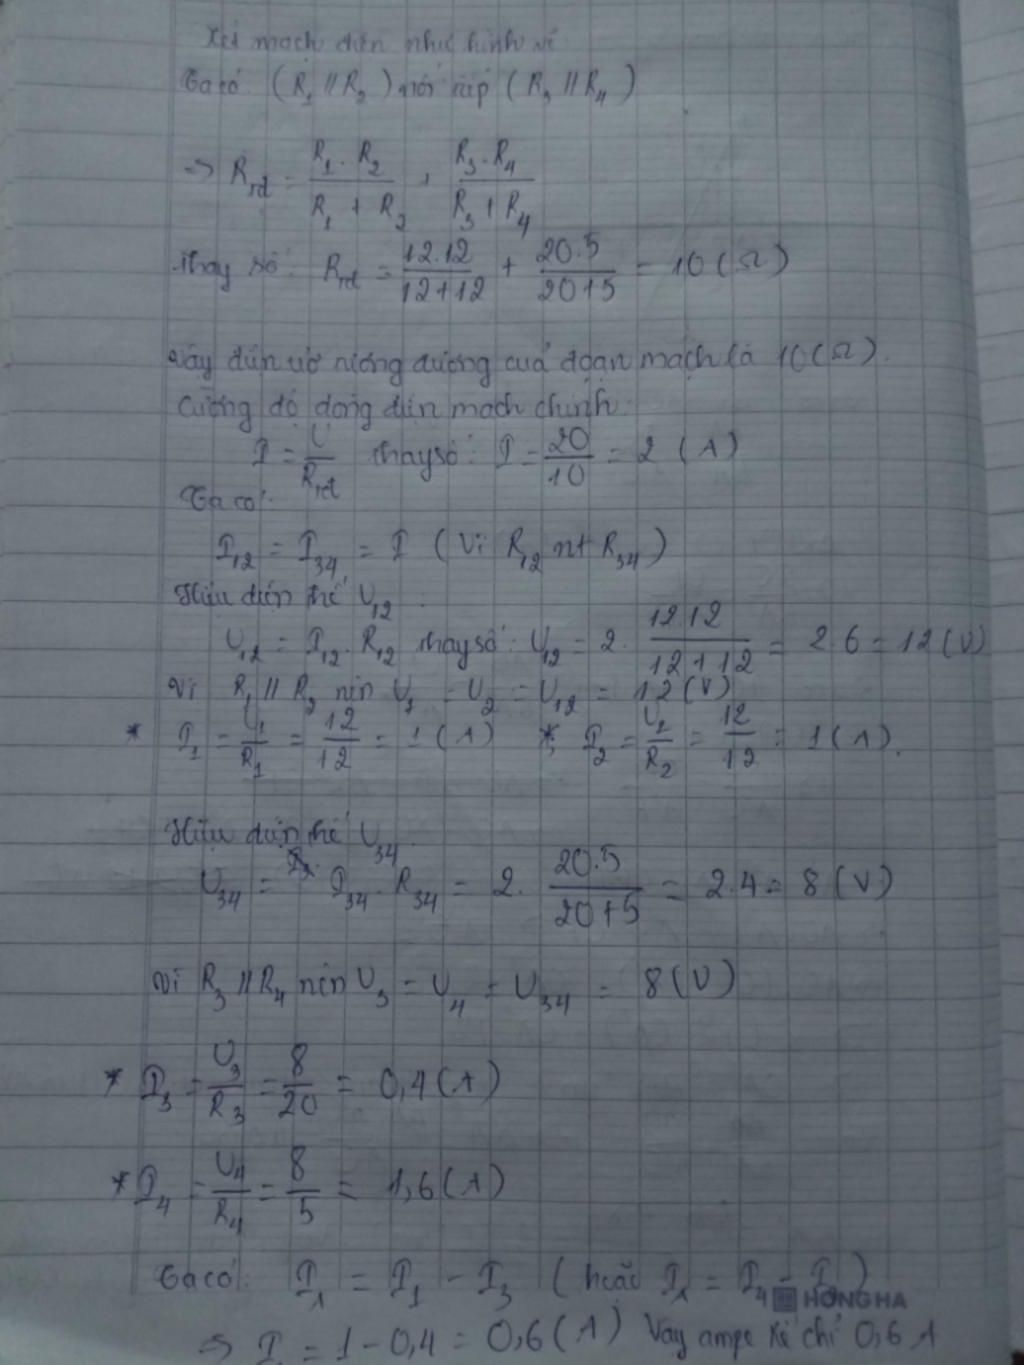 Xét mạch điện như hình vẽ
Ta có (R₁ // R₂) nối tiếp (R₃ // R₄)
=> Rtđ = R₁.R₂ / R₁ + R₂ + R₃.R₄ / R₃ + R₄
Thay số: Rtđ = 12.12 / 12+12 + 20.5 / 20+5 = 10 (Ω)
Vậy điện trở tương đương của đoạn mạch là 10 (Ω).
Cường độ dòng điện mạch chính
I = U / Rtđ thay số: I = 20 / 10 = 2 (A)
Ta có:
I₁₂ = I₃₄ = I (Vì R₁₂ nt R₃₄)
Hiệu điện thế U₁₂ :
U₁₂ = I₁₂.R₁₂ thay số: U₁₂ = 2. 12.12 / 12+12 = 2.6 = 12 (V)
Vì R₁ // R₂ nên U₁ = U₂ = U₁₂ = 12 (V)
* I₁ = U₁ / R₁ = 12 / 12 = 1 (A) * I₂ = U₁ / R₂ = 12 / 12 = 1 (A).
Hiệu điện thế U₃₄
U₃₄ = I₃₄.R₃₄ = 2. 20.5 / 20+5 = 2.4 = 8 (V)
Vì R₃ // R₄ nên U₃ = U₄ = U₃₄ = 8 (V)
* I₃ = U₃ / R₃ = 8 / 20 = 0,4 (A)
* I₄ = U₄ / R₄ = 8 / 5 = 1,6 (A)
Ta có: I_A = I₁ - I₃ (hoặc I_A = I₄ - I )
HONG HA
=> I = 1 - 0,4 = 0,6 (A) Vậy ampe kế chỉ 0,6 A